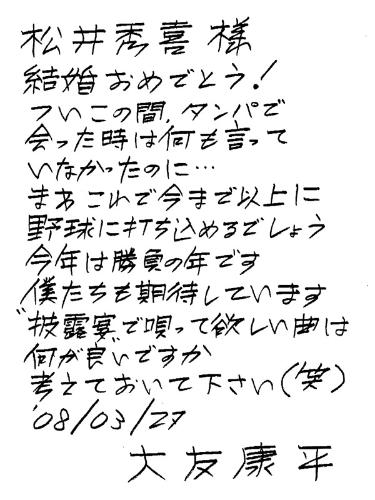 松井秀喜様
結婚おめでとう!
ついこの間、タンパで
会った時は何も言って
いなかったのに…
まあこれで今まで以上に
野球に打ち込めるでしょう
今年は勝負の年です
僕たちも期待しています
"披露宴で唄って欲しい曲は
何が良いですか
考えておいて下さい(笑)
'08/03/27
大友康平